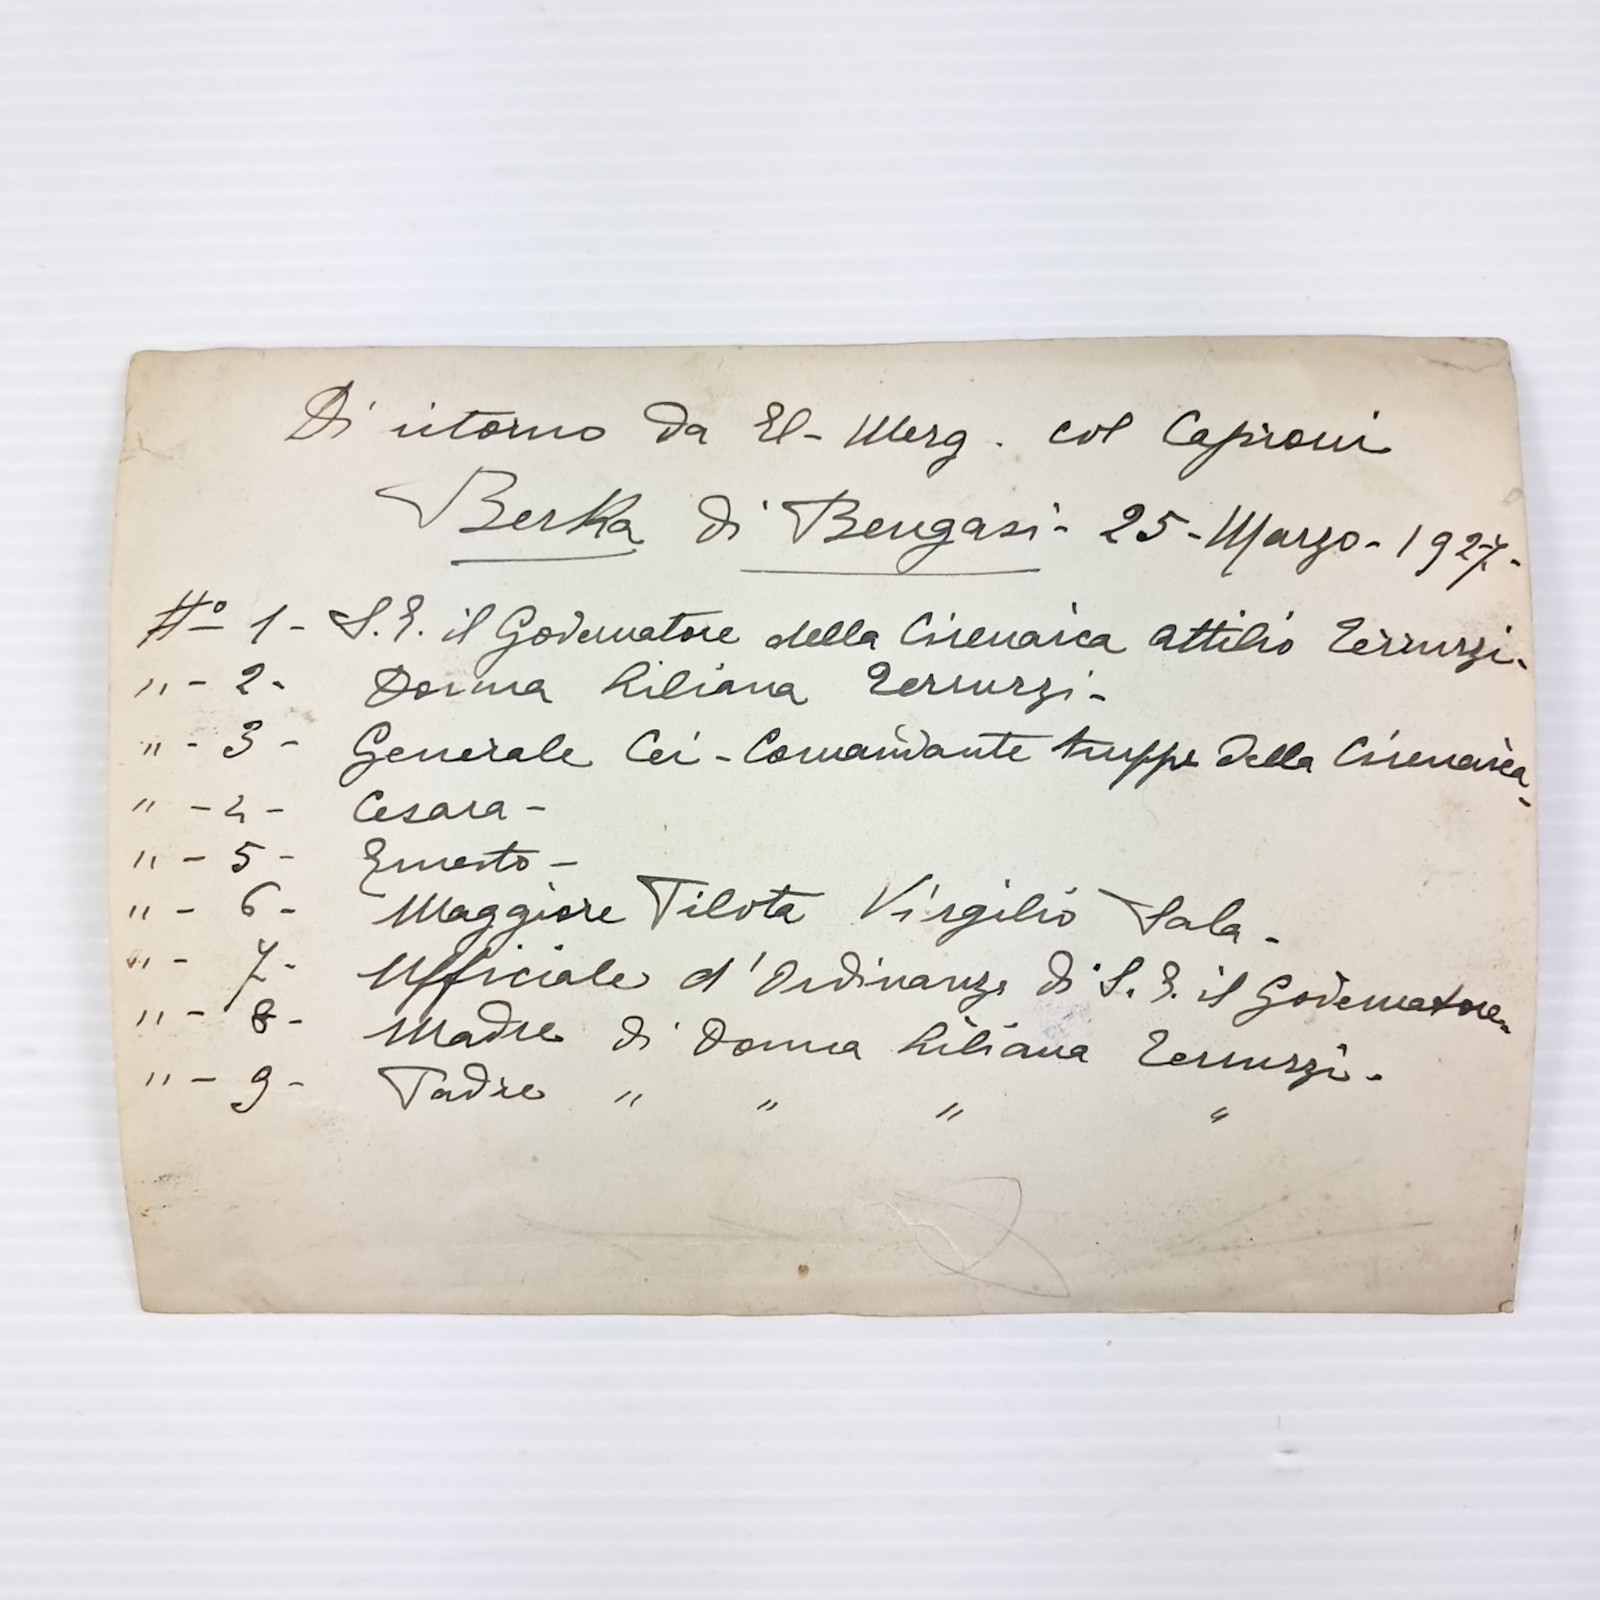 Di ritorno da El-Merg. col Caproni
Berka di Bengasi - 25 - Marzo - 1927 -
N° 1 - S. E. il Governatore della Cirenaica Attilio Terruzzi -
" - 2 - Donna Liliana Terruzzi -
" - 3 - Generale Cei - Comandante truppe della Cirenaica -
" - 4 - Cesara -
" - 5 - Ernesto -
" - 6 - Maggiore Pilota Virgilio Sala -
" - 7 - Ufficiale d'Ordinanza di S. E. il Governatore -
" - 8 - Madre di Donna Liliana Terruzzi -
" - 9 - Padre " " " "